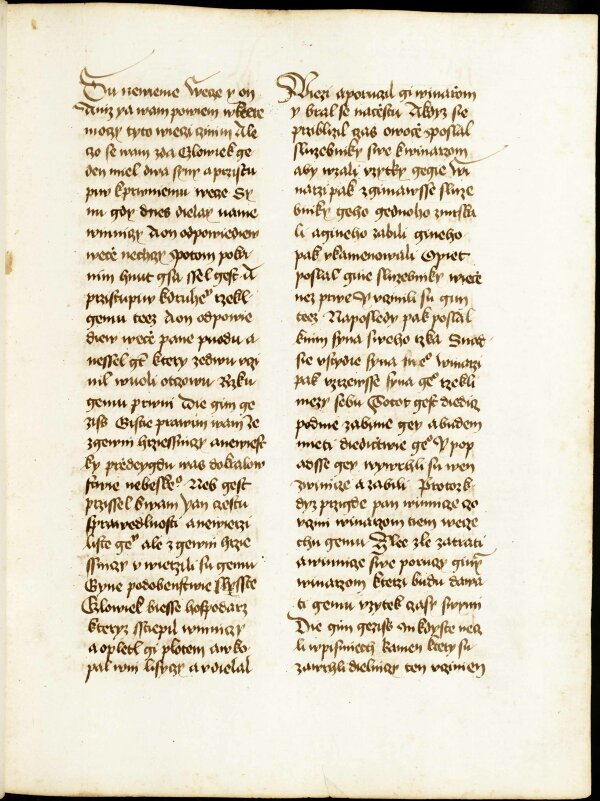 Tu newieme Wece y on
Aniz ya wam powiem w ktere
moczy tyto wieczi czinim Ale
czo se wam zda Czlowiek ge
den miel dwa syny a przistu
piw k prwniemu wece Sy
nu gdy dnes dielay na me
winniczi A on odpowiediew
wece nechczy Potom poka
nim hnut gsa ssel gest A
przistupiw k druhe⁹ rzekl
gemu teez A on odpowie
diew wece pane puodu a
nessel gt ktery z edwu vczi
nil wuoli otczowu Rzku
gemu prwni Die gim ge
ziss Gistie prawim wam Ze
zgewni hrziessniczy a newiest
ky predeygdu was do kralow
stwie nebeske⁹ Neb gest
przissel k wam Yan czestu
sprawedlnosti a newierzi
liste ge⁹ ale zgewni hrzie
ssniczy vwierzili su gemu
Gyne podobenstwie slysste
Czlowiek biesse hospodarz
kteryz sstiepil winniczy
a opletl gi plotem a wko
pal w ni lisyczy a vdielal
Wiezi a poruczil gi winarzom
y bral se na czestu A kdyz sie
prziblizil czas owoce poslal
sluzebniky swe k winarzom
aby wzali vzytky gegie Wi
narzi pak zgimawsse sluze
bniky geho gednoho zmrska
li a gineho zabili gineho
pak vkamenowali Opiet
poslal gine sluzebniky wiece
nez prwe Y vczinili su gim
teez Naposledy pak poslal
k nim syna sweho rzka Snad
sie vstydie syna me⁹ Winarzi
pak vzrzewsse syna ge⁹ rzekli
mezy sebu Totot gest diedicz
podme zabime gey a budem
mieti diedictwie ge⁹ Y pop
adsse gey wywrhli su wen
z winnicze a zabili Protoz k
dyz przigde pan winnicze czo
vczini winarzom tiem wecze
chu gemu Zlee zle zatrati
a winnicze swe poruczy giny
winarzom kterzi budu dawa
ti gemu vzytek czasy swymi
Die gim gezis Nikdyste necz
li w pismiech kamen ktery su
zawrhli dielniczy ten vczinen